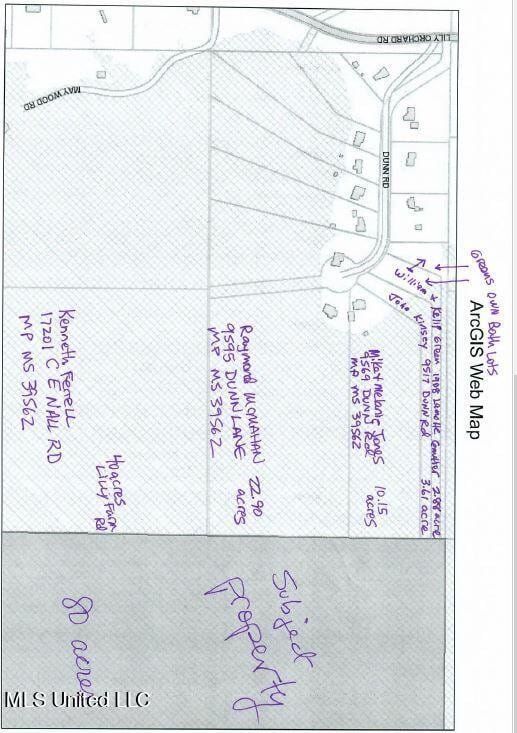 ArcGIS Web Map
LILY ORCHARD RD
DUNN RD
MAYWOOD RD
Greens own Both Lots
William & Kelly Green 1908 2.88 acre
John Kinsey 9517 Dunn Rd 3.61 acre
Mika & Melanie Jones 10.15
9569 Dunn Rd acres
MP MS 39562
Raymond McMahan 22.90
9595 DUNN LANE acres
MP MS 39562
Kenneth Ferrell
17201 C E NALL RD
MP MS 39562
40 acres
Lilly Farm
Rd
Subject
property
80 acres
MLS United LLC